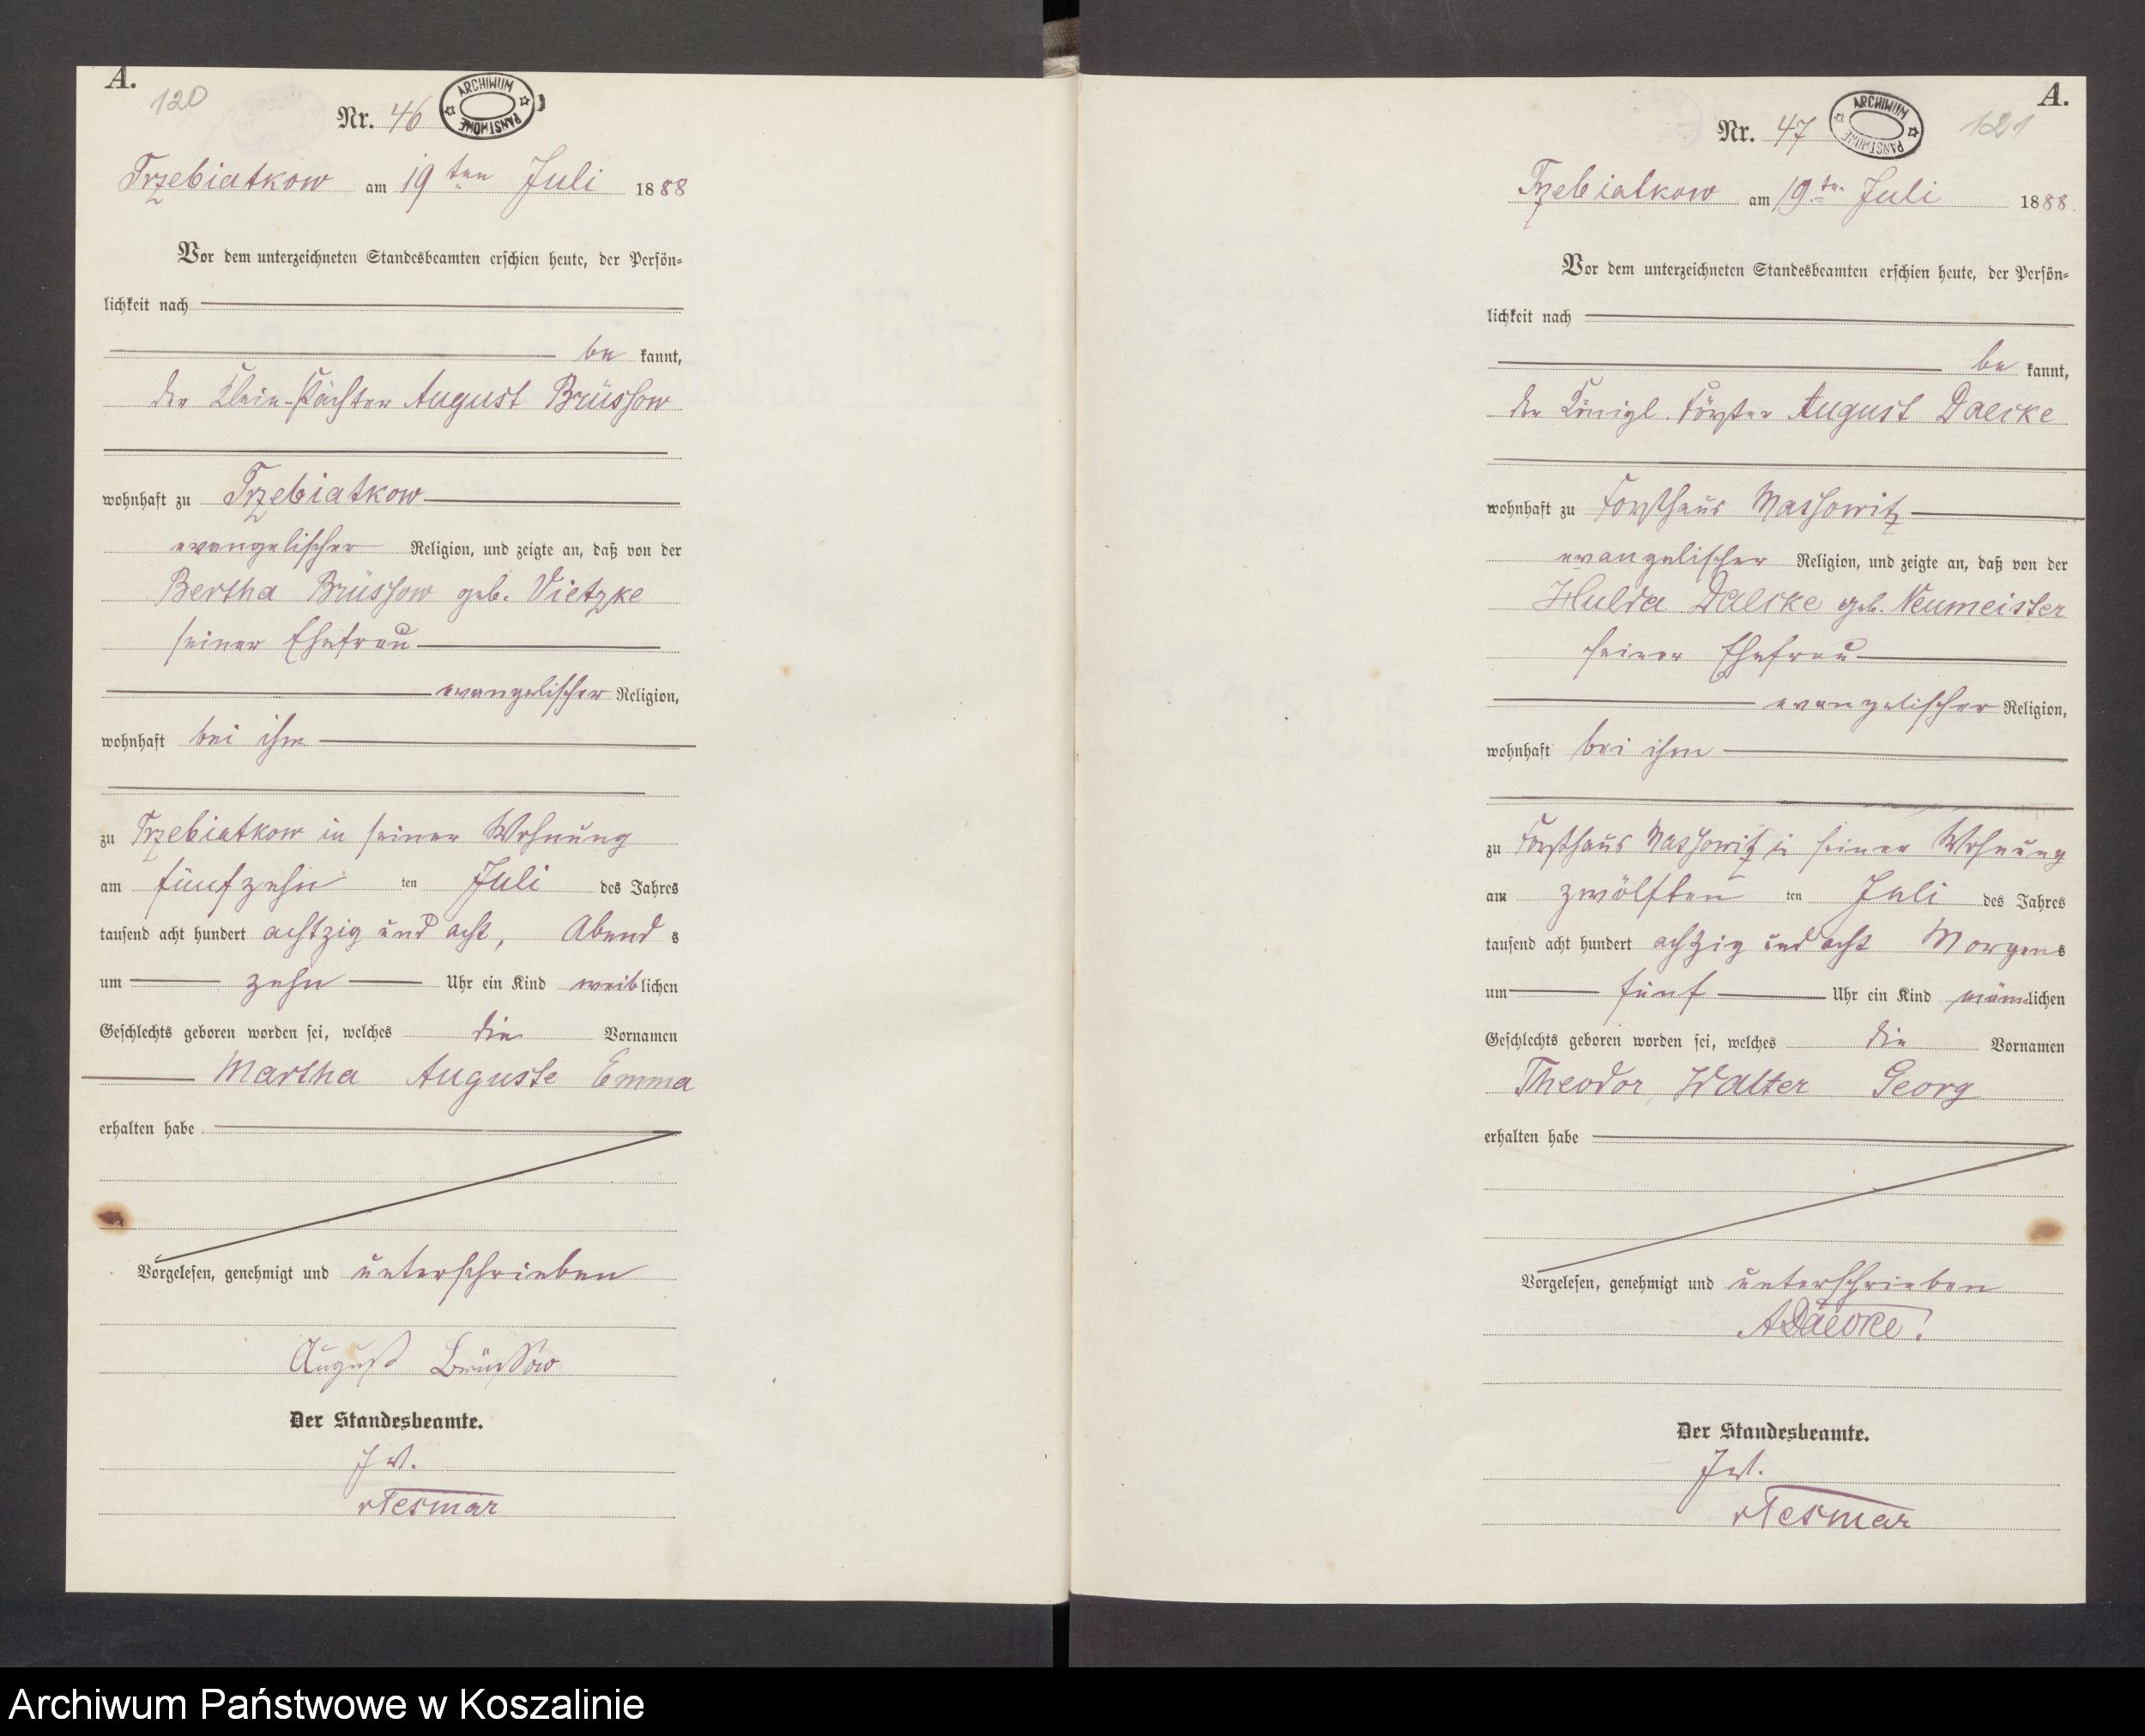 A.
120
Nr. 46
ARCHIWUM PAŃSTWOWE
Trzebiatkow am 19ten Juli 1888
Vor dem unterzeichneten Standesbeamten erschien heute, der Persön-
lichkeit nach
be kannt,
der Klein-Pächter August Brüssow
wohnhaft zu Trzebiatkow
evangelischer Religion, und zeigte an, daß von der
Bertha Brüssow geb. Vietzke
seiner Ehefrau
evangelischer Religion,
wohnhaft bei ihm
zu Trzebiatkow in seiner Wohnung
am fünfzehn ten Juli des Jahres
tausend acht hundert achtzig und acht, Abend s
um zehn Uhr ein Kind weiblichen
Geschlechts geboren worden sei, welches die Vornamen
Martha Auguste Emma
erhalten habe
Vorgelesen, genehmigt und unterschrieben
August Brüssow
Der Standesbeamte.
In V.
vTesmar
A.
121
Nr. 47
ARCHIWUM PAŃSTWOWE
Trzebiatkow am 19ten Juli 1888
Vor dem unterzeichneten Standesbeamten erschien heute, der Persön-
lichkeit nach
be kannt,
der Königl. Förster August Daecke
wohnhaft zu Forsthaus Massowitz
evangelischer Religion, und zeigte an, daß von der
Hulda Daecke geb. Neumeister
seiner Ehefrau
evangelischer Religion,
wohnhaft bei ihm
zu Forsthaus Massowitz in seiner Wohnung
am zwölften ten Juli des Jahres
tausend acht hundert achtzig und acht Morgens
um fünf Uhr ein Kind männlichen
Geschlechts geboren worden sei, welches die Vornamen
Theodor, Walter Georg
erhalten habe
Vorgelesen, genehmigt und unterschrieben
ADaecke!
Der Standesbeamte.
vTesmar
Archiwum Państwowe w Koszalinie